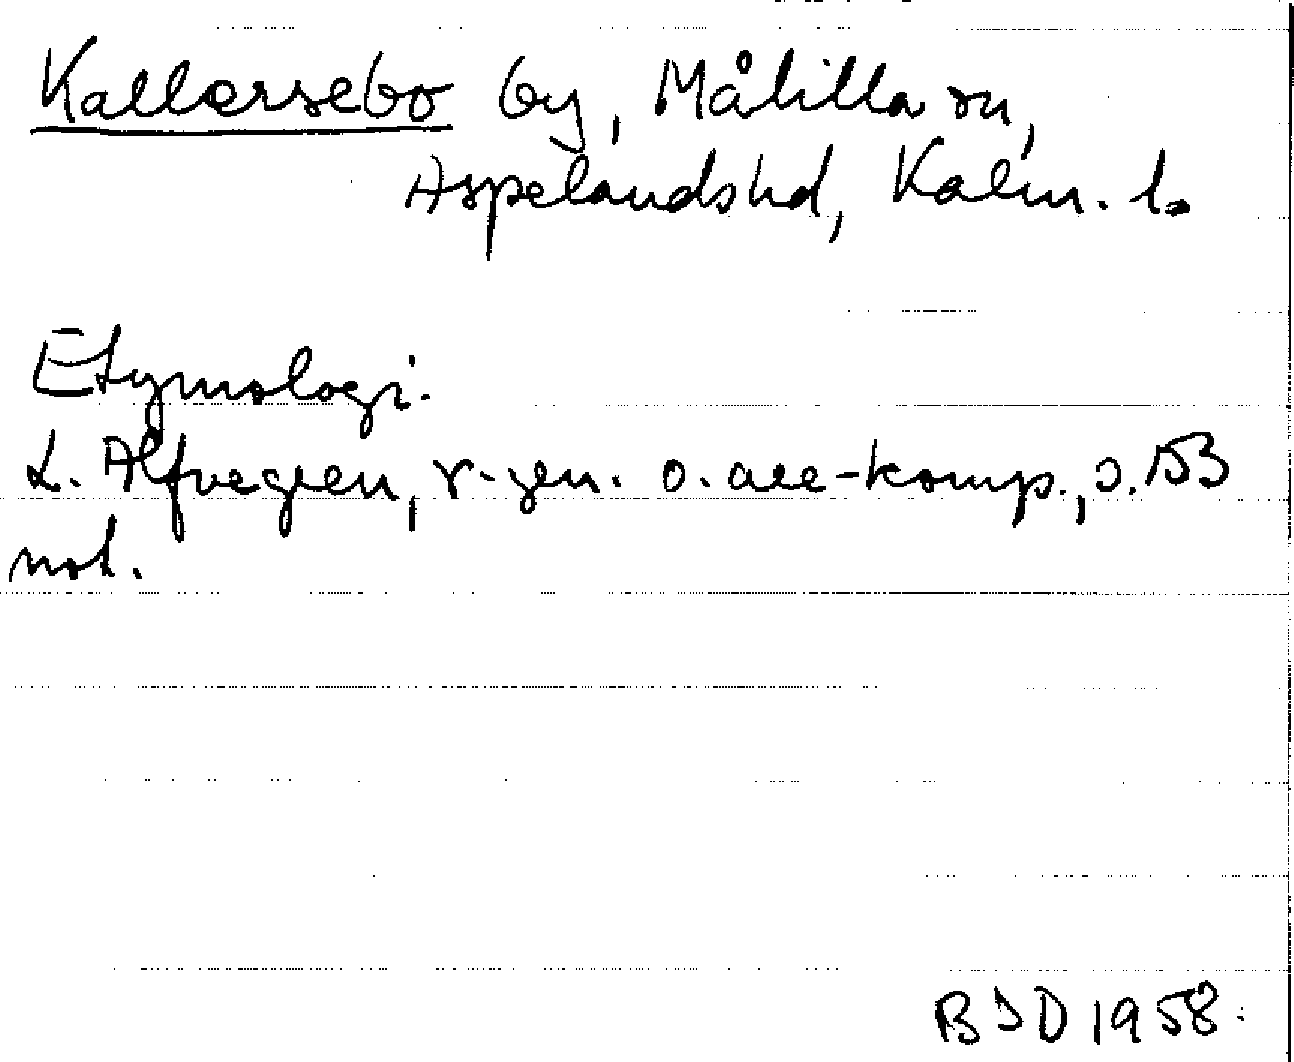 Kallersebo by, Målilla sn,
Aspelandshd, Kalm. l.
Etymologi.
L. Alfvegren, r-gen. o. are-komp., s. 153
not.
BJD 1958.